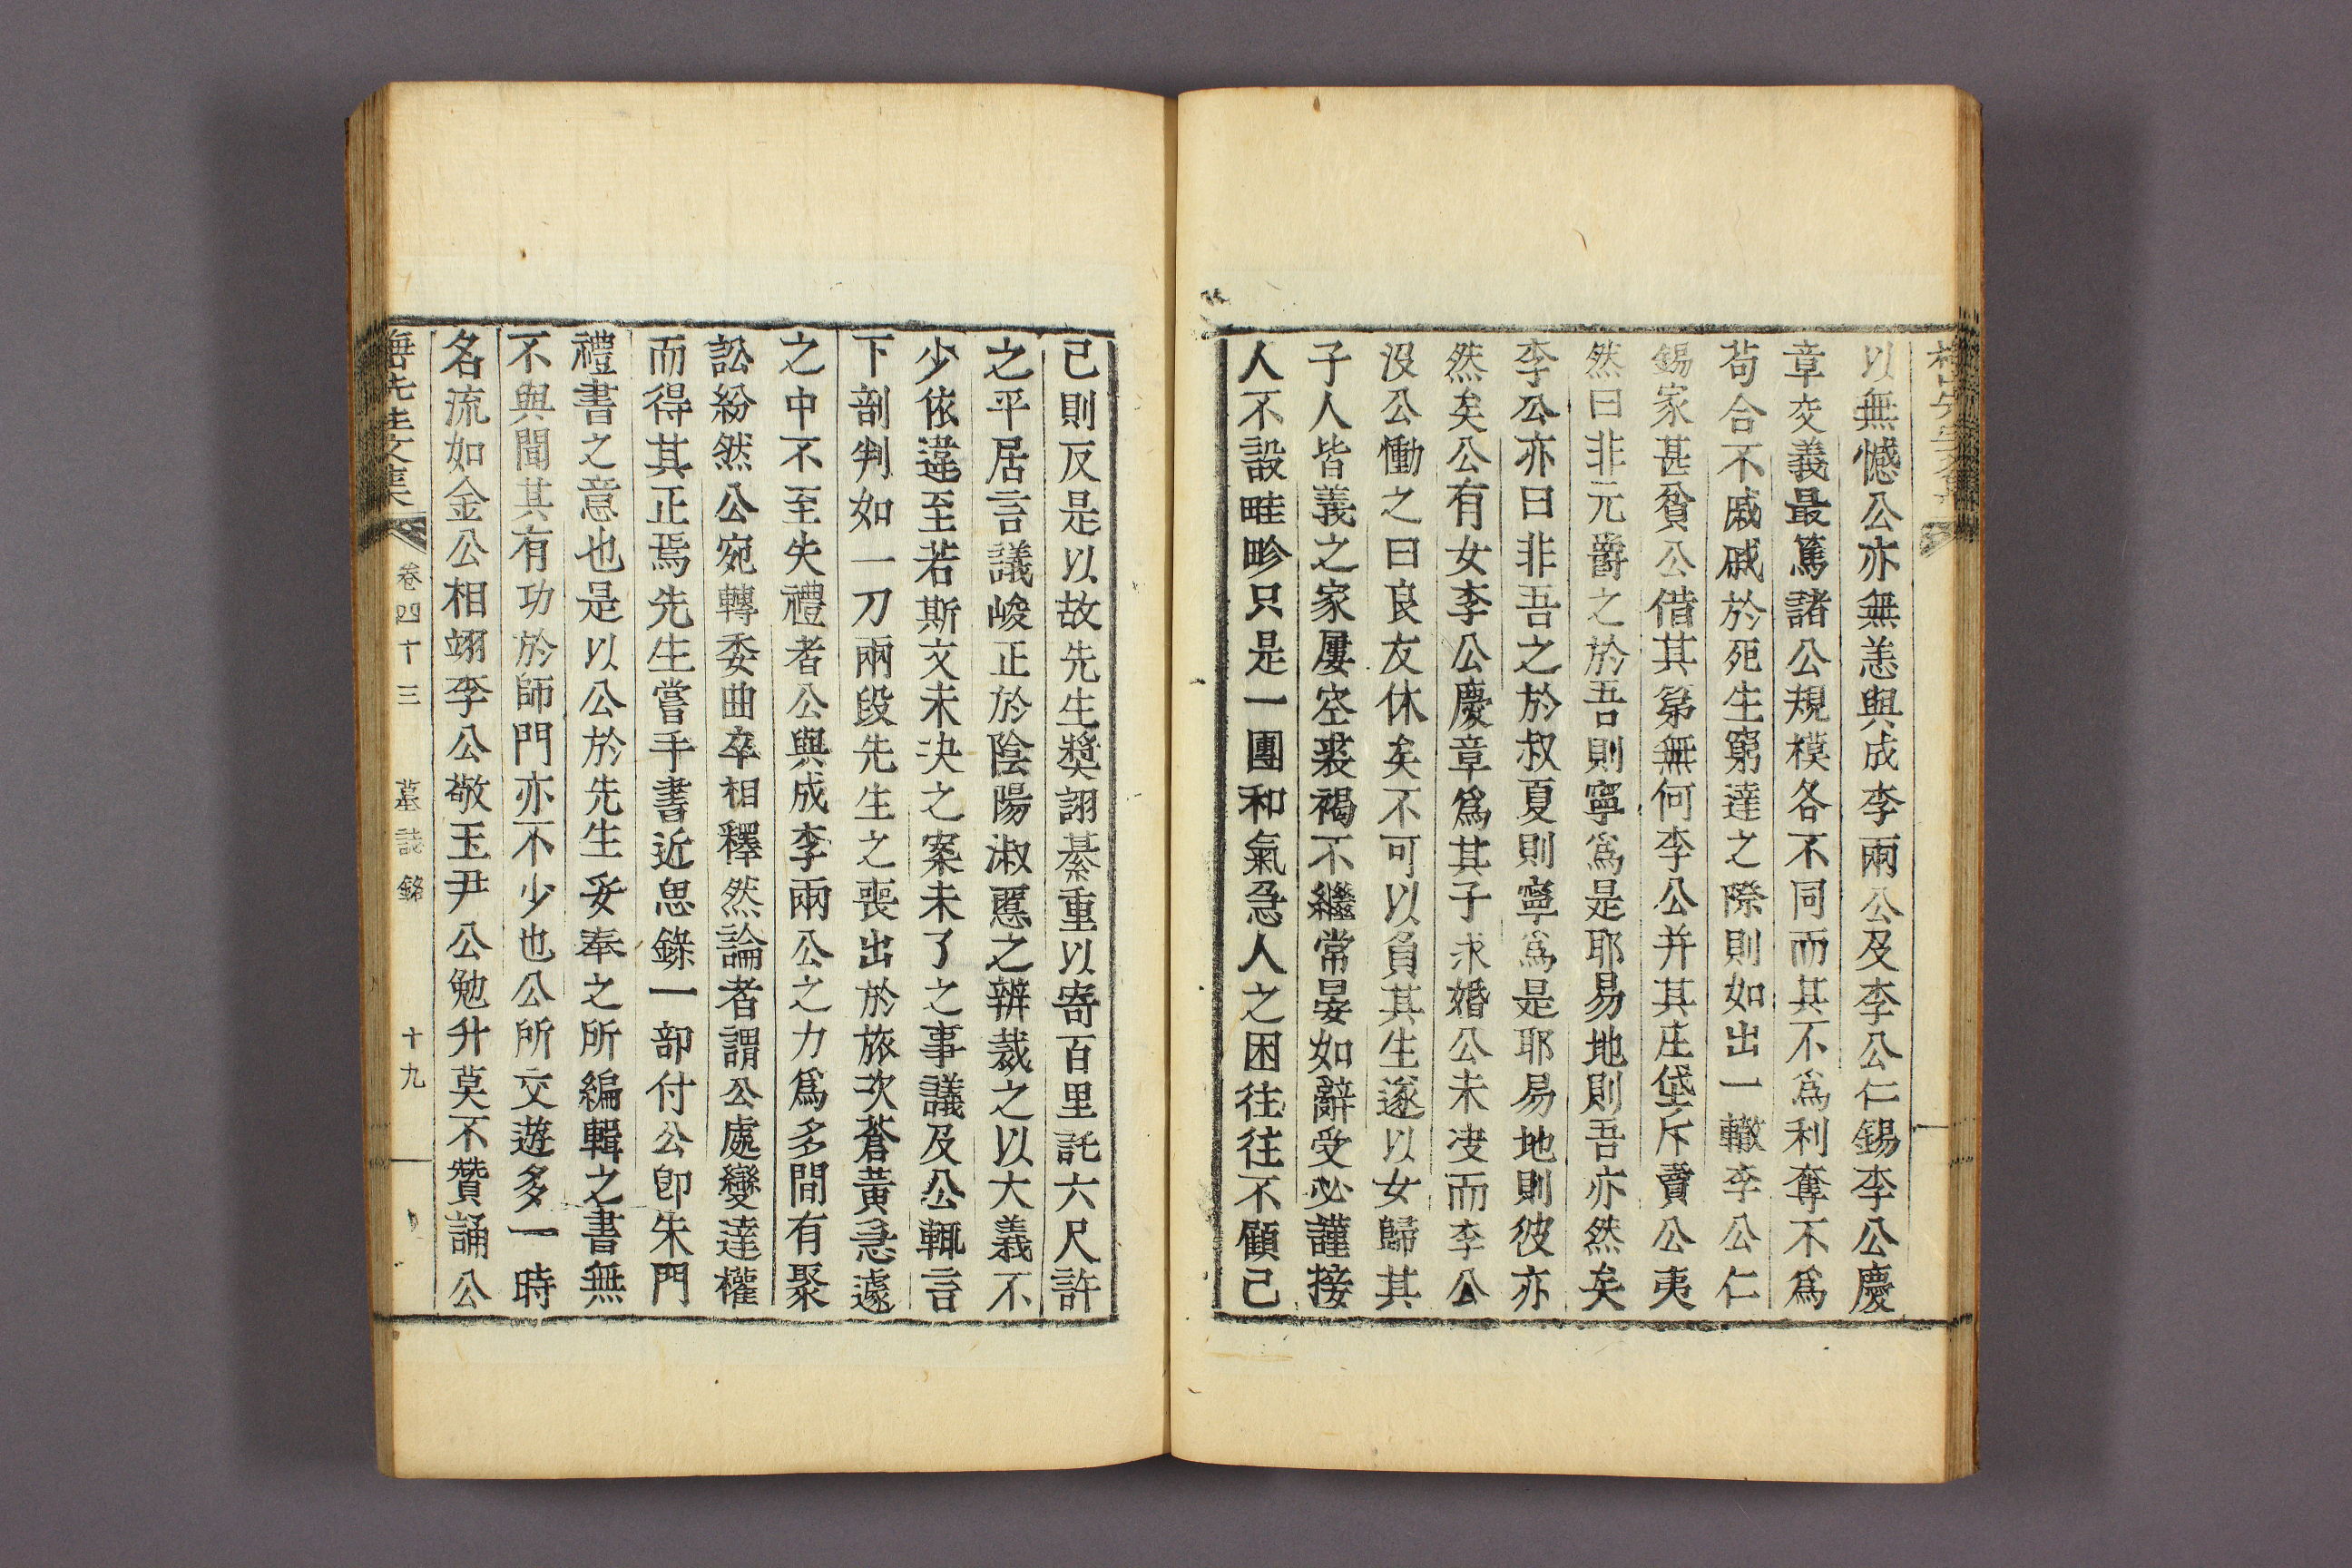 以無憾公亦無恙與成李兩公及李公仁錫李公慶
章交義最篤諸公規模各不同而其不爲利奪不爲
苟合不戚戚於死生窮達之際則如出一轍李公仁
錫家甚貧公借其第無何李公并其庄垈斥賣公夷
然曰非元爵之於吾則寧爲是耶易地則吾亦然矣
李公亦曰非吾之於叔夏則寧爲是耶易地則彼亦
然矣公有女李公慶章爲其子求婚公未决而李公
沒公慟之曰良友休矣不可以負其生遂以女歸其
子人皆義之家屢空裘褐不繼常晏如辭受必謹接
人不設畦畛只是一團和氣急人之困往往不顧己
己則反是以故先生獎詡綦重以寄百里託六尺許
之平居言議峻正於陰陽淑慝之辨裁之以大義不
少依違至若斯文未决之案未了之事議及公輒言
下剖判如一刀兩段先生之喪出於旅次蒼黃急遽
之中不至失禮者公與成李兩公之力爲多間有聚
訟紛然公宛轉委曲卒相釋然論者謂公處變達權
而得其正焉先生嘗手書近思錄一部付公卽朱門
禮書之意也是以公於先生妥奉之所編輯之書無
不與聞其有功於師門亦不少也公所交遊多一時
名流如金公相翊李公敬玉尹公勉升莫不贊誦公
先生文集 卷四十三 墓誌銘 十九